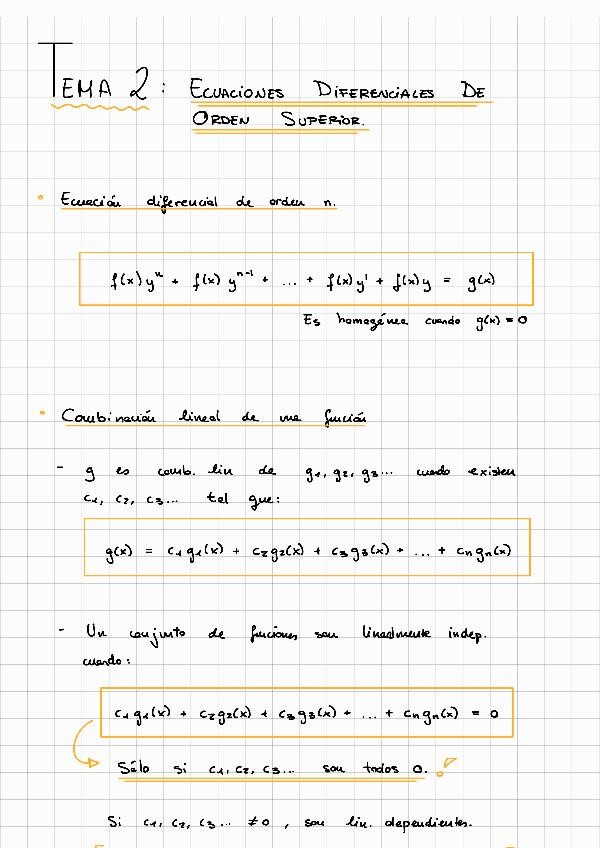 TEMA 2: ECUACIONES DIFERENCIALES DE
ORDEN SUPERIOR.
• Ecuación diferencial de orden n.
f(x)yⁿ + f(x) yⁿ⁻¹ + ... + f(x)y' + f(x)y = g(x)
Es homogénea cuando g(x) = 0
• Combinación lineal de una función
- g es comb. lin de g₁, g₂, g₃... cuando existen
c₁, c₂, c₃... tal que:
g(x) = c₁g₁(x) + c₂g₂(x) + c₃g₃(x) + ... + cₙgₙ(x)
- Un conjunto de funciones son linealmente indep.
cuando:
c₁g₁(x) + c₂g₂(x) + c₃g₃(x) + ... + cₙgₙ(x) = 0
Sólo si c₁, c₂, c₃... son todos 0. !
Si c₁, c₂, c₃... ≠0, son lin. dependientes.